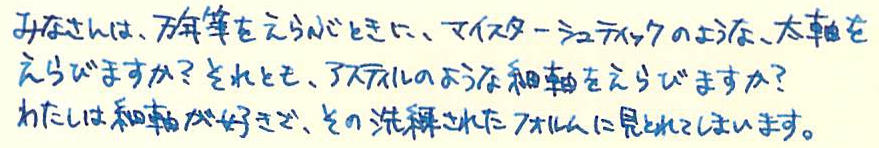 みなさんは、万年筆をえらぶときに、マイスターシュティックのような、太軸を
えらびますか？それとも、アスティルのような細軸をえらびますか？
わたしは細軸が好きで、その洗練されたフォルムに見とれてしまいます。